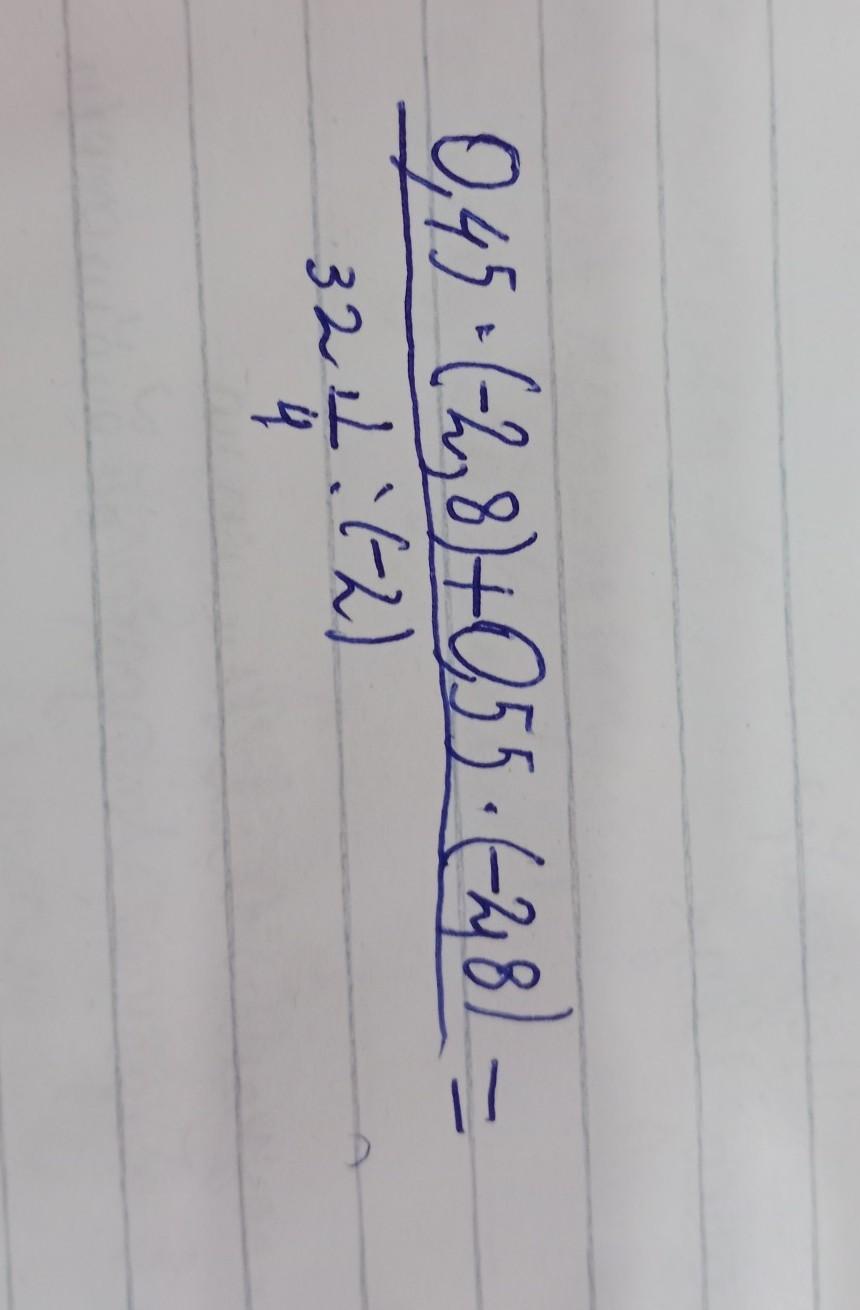 0,45 · (-2,8) + 0,55 · (-2,8) =
32 1/4 : (-2)